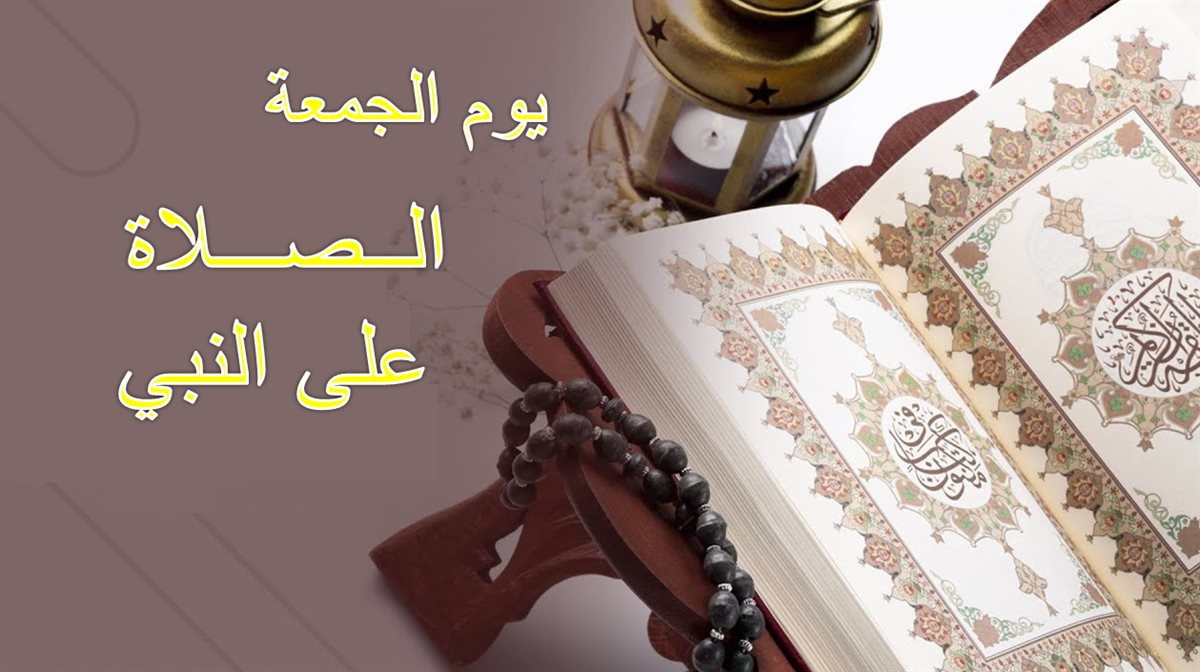 يوم الجمعة
الــصــــلاة
على النبي